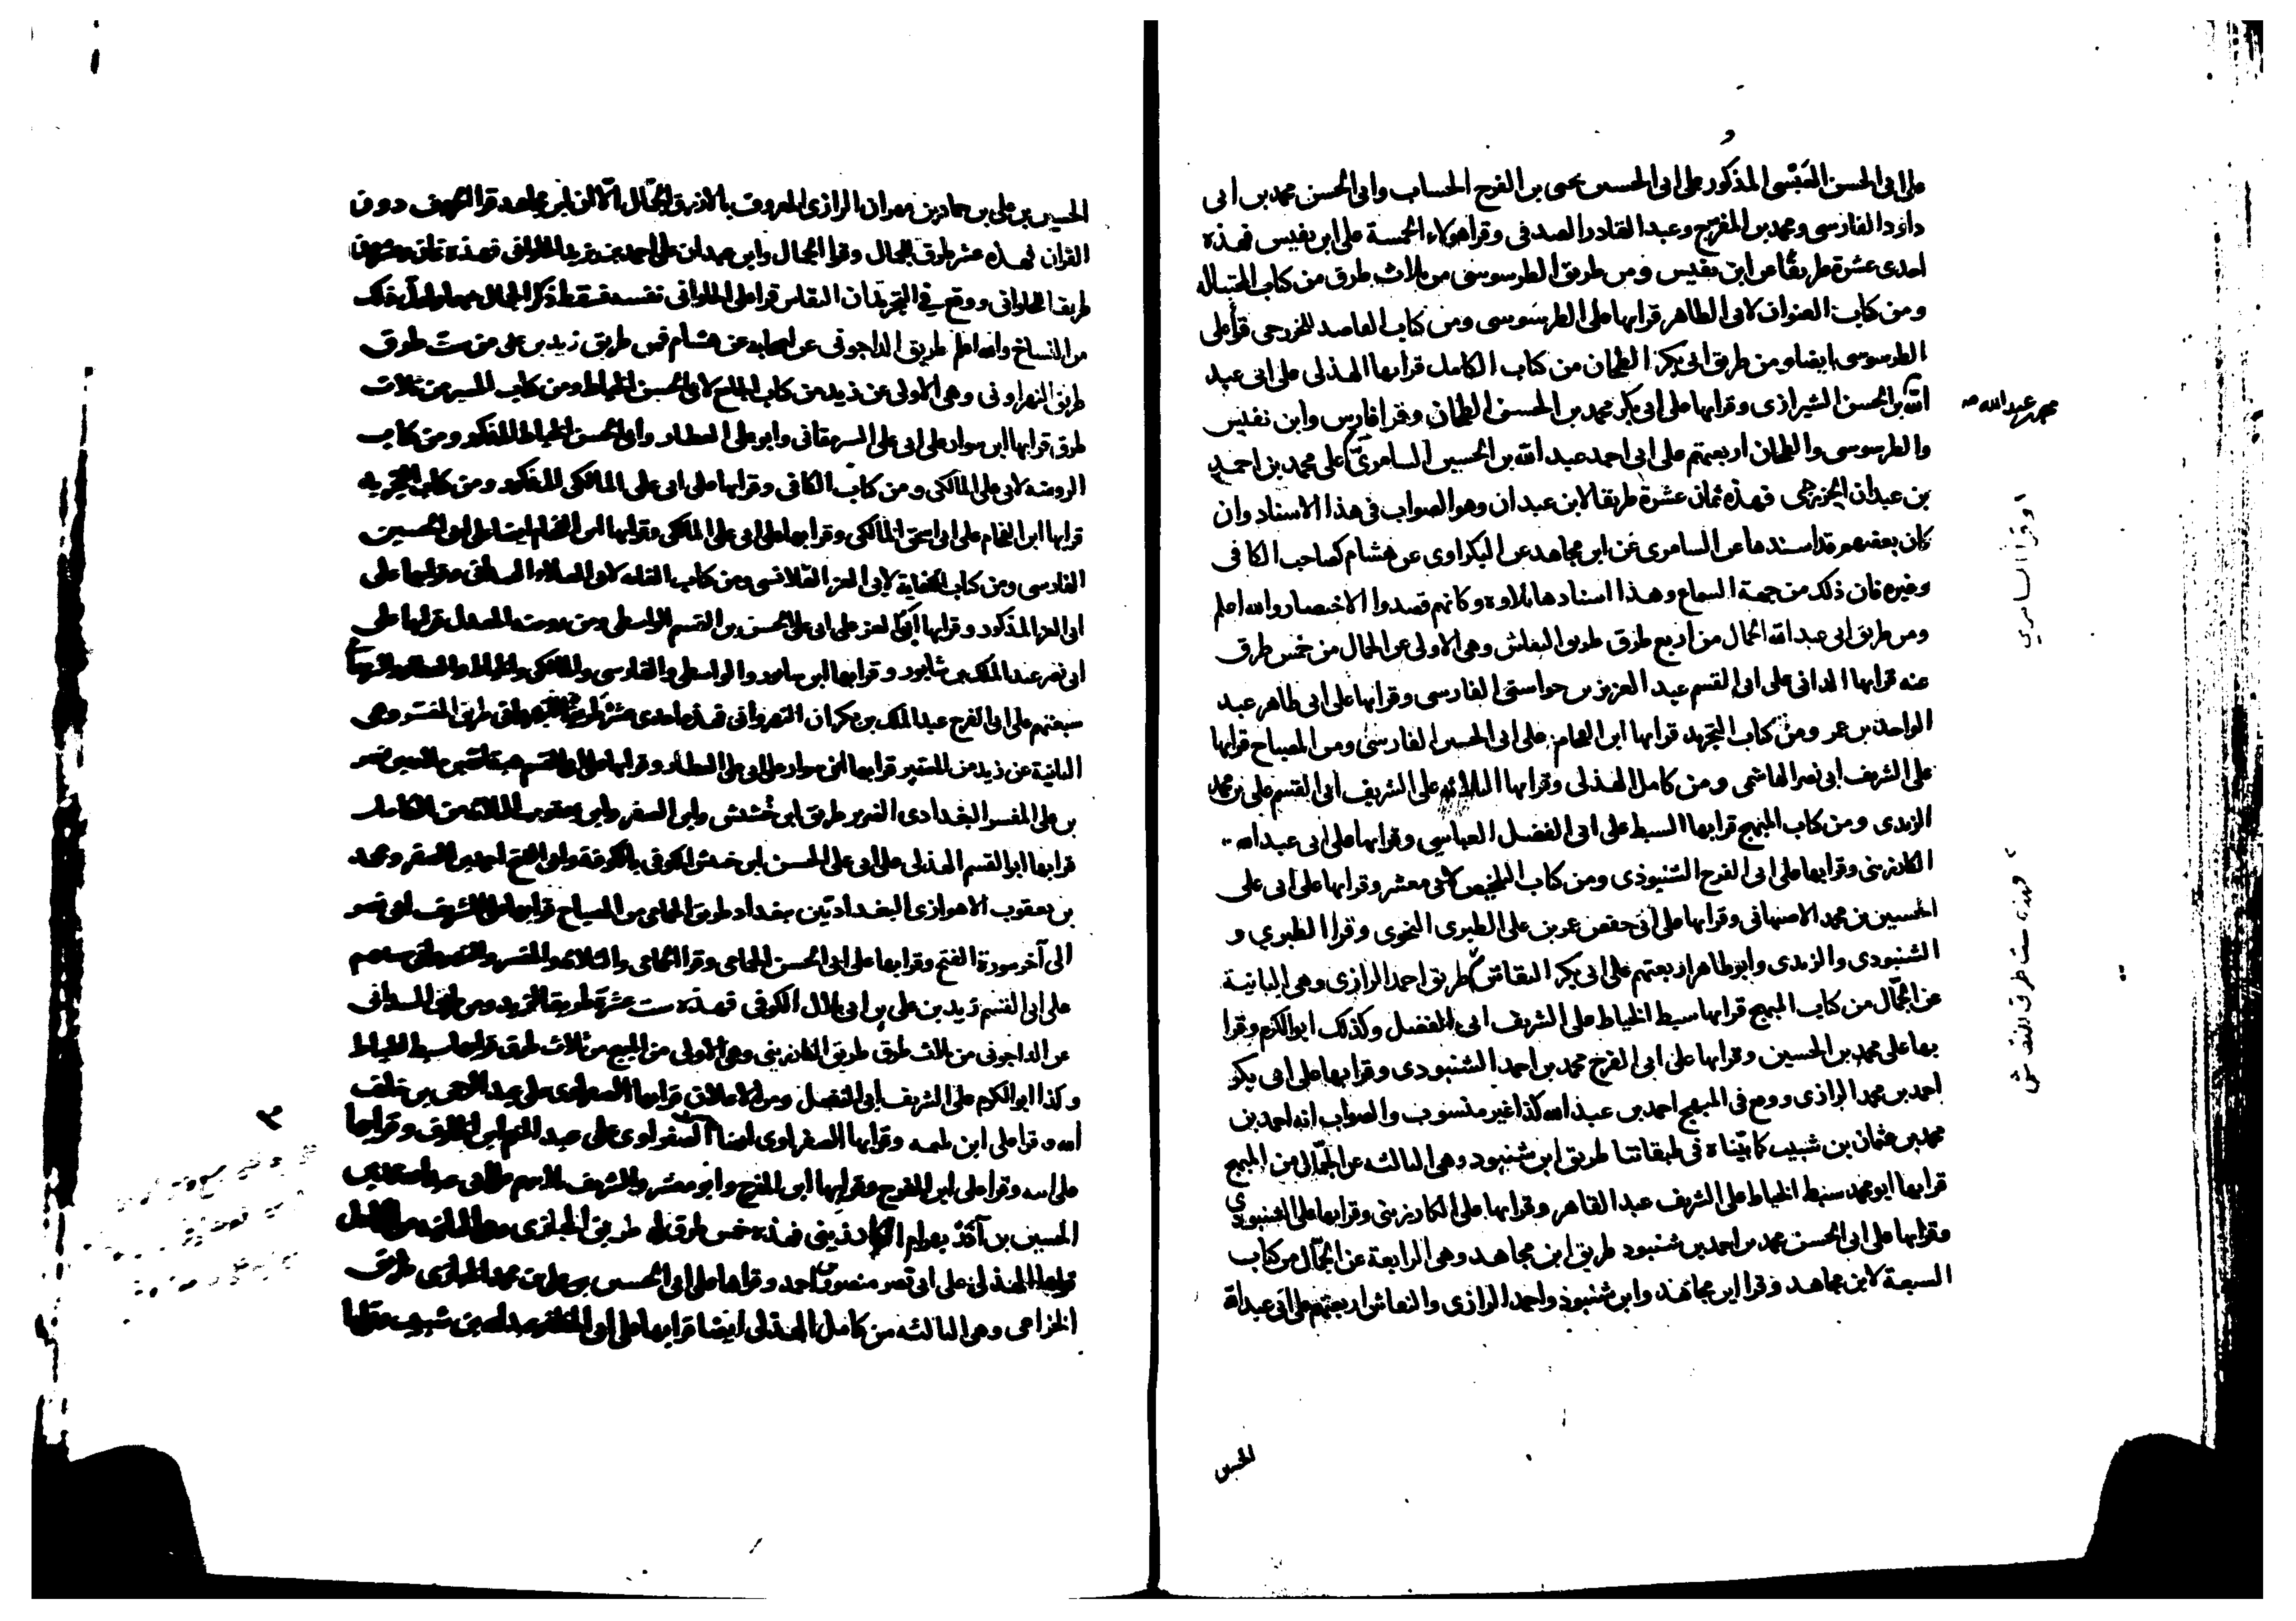 على ابى الحسن العبسى المذكور على ابى الحسين يحيى بن الفرج الحساب وابى الحسن محمد بن ابى
داود الفارسى ومحمد بن المفرج وعبد القادر الصدفى وقرا هولاء الخمسة على ابن نفيس فهذه
احدى عشرة طريقا عن ابن نفيس ومن طريق الطرسوسى من ثلاث طرق من كتاب المجتبا له
ومن كتاب العنوان لابى الطاهر قرا بها على الطرسوسى ومن كتاب القاصد للخزرجى قرأ على
الطرسوسى ايضا ومن طرق ابى بكر الطحان من كتاب الكامل قرا بها الهذلى على ابى عبد
الله بن الحسن الشيرازى وقرا بها على ابى بكر محمد بن الحسن الطحان وقرا فارس وابن نفيس
محمد بن عبد الله
والطرسوسى والطحان اربعتهم على ابى احمد عبد الله بن الحسين السامرى على محمد بن احمد
وقرأ السامري
بن عبدان الخزرجى فهذه ثمان عشرة طريقا لابن عبدان وهو الصواب فى هذا الاسناد وان
كان بعضهم قد اسندها عن السامرى عن ابن مجاهد عن البكراوى عن هشام كصاحب الكافى
وغيره فان ذلك من جهة السماع وهذا اسنادها تلاوة وكانهم قصدوا الاختصار والله اعلم
ومن طريق ابى عبد الله الجمال من اربع طرق طريق النقاش وهى الاولى عن الجمال من خمس طرق
عنه قرا بها الدانى على ابى القسم عبد العزيز بن خواستى الفارسى وقرا بها على ابى طاهر عبد
الواحد بن عمر ومن كتاب التجريد قرا بها ابن الفحام على ابى الحسين الفارسى ومن المصباح قرا بها
على الشريف ابى نصر الهاشمى ومن كامل الهذلى وقرا بها الثلاثة على الشريف ابى القسم على بن محمد
الزيدى ومن كتاب المبهج قرا بها السبط على ابى الفضل العباسى وقرا بها على ابى عبد الله
الكارزينى وقرا بها على ابى الفرج الشنبوذى ومن كتاب التلخيص لابى معشر وقرا بها على ابى على
فهذه ست طرق للنقاش
الحسين بن محمد الاصبهانى وقرا بها على ابى حفص عمر بن على الطبرى النحوى وقرا الطبرى و
الشنبوذى والزيدى وابو طاهر اربعتهم على ابى بكر النقاش طريق احمد الرازى وهى الثانية
عن الجمال من كتاب المبهج قرا بها سبط الخياط على الشريف ابى الفضل وكذلك ابو الكرم وقرا
بها على محمد بن الحسين وقرا بها على ابى الفرج محمد بن احمد الشنبوذى وقرا بها على ابى بكر
احمد بن محمد الرازى ووقع فى المبهج احمد بن عبد الله كذا غير منسوب والصواب انه احمد بن
محمد بن عثمان بن شبيب كما بيناه فى طبقاتنا طريق ابن شنبوذ وهى الثالثة عن الجمال من المبهج
قرا بها ابو محمد سبط الخياط على الشريف عبد القاهر وقرا بها على الكارزينى وقرا بها على الشنبوذى
وقرا بها على ابى الحسن محمد بن احمد بن شنبوذ طريق ابن مجاهد وهى الرابعة عن الجمال من كتاب
السبعة لابن مجاهد وقرا ابن مجاهد وابن شنبوذ واحمد الرازى والنقاش اربعتهم على ابى عبد الله
الحسين
الحسين بن على بن حماد بن مهران الرازى المعروف بالازرق الجمال الا ان ابن مجاهد قرا الحروف دون
القران فهذه عشر طرق للجمال وقرا الجمال وابن عبدان على احمد بن يزيد الحلوانى فهذه ثمان وعشرون
طريقا للحلوانى ووقع فى التجريد ان النقاش قرا على الحلوانى نفسه فسقط ذكر الجمال بينهما ولعل ذلك
من النساخ والله اعلم طريق الداجونى عن اصحابه عن هشام فمن طريق زيد بن على من ست طرق
طريق النهروانى وهى الاولى عن زيد من كتاب الجامع لابى الحسن الخياط ومن كتاب المستنير من ثلاث
طرق قرا بها ابن سوار على ابى على الشرمقانى وابو على العطار وابو الحسن الخياط المذكور ومن كتاب
الروضة لابى على المالكى ومن كتاب الكافى وقرا بها على ابى على المالكى المذكور ومن كتاب التجريد
قرا بها ابن الفحام على ابى اسحق المالكى وقرا بها على ابى على المالكى وقرا بها ابن الفحام ايضا على ابى الحسين
الفارسى ومن كتاب الكفاية لابى العز القلانسى ومن كتاب الغاية لابى العلاء الهمدانى وقرا بها على
ابى العز المذكور وقرا بها ابو العز على ابى على الحسن بن القسم الواسطى ومن روضة المعدل قرا بها على
ابى نصر عبد الملك بن شابور وقرا بها ابن شابور والواسطى والفارسى والمالكى والخياط والعطار والشرمقانى
سبعتهم على ابى الفرج عبد الملك بن بكران النهروانى فهذه احدى عشرة طريقا للنهروانى طريق المفسر وهى
الثانية عن زيد من المستنير قرا بها ابن سوار على ابى على العطار وقرا بها على ابى القسم هبة الله بن سلامة بن نصر
بن على المفسر البغدادى الضرير طريق ابن خشيش وابن الصقر وابن يعقوب الثلاثة من الكامل
قرا بها ابو القسم الهذلى على ابى على الحسن ابن خشيش الكوفى بالكوفة وابو الفتح احمد بن الصقر ومحمد
بن يعقوب الاهوازى البغداديين ببغداد طريق الحمامى من المصباح قرا بها على الشريف ابى نصر
الى آخر سورة الفتح وقرا بها على ابى الحسن الحمامى وقرا الحمامى والثلاثة والمفسر والنهروانى ستتهم
على ابى القسم زيد بن على بن ابى بلال الكوفى فهذه ست عشرة طريقا لزيد ومن طريق الشذائى
عن الداجونى من ثلاث طرق طريق الكارزينى وهى الاولى من المبهج من ثلاث طرق قرا بها سبط الخياط
وكذا ابو الكرم على الشريف ابى الفضل ومن الاعلان قرا بها الصفراوى على عبد الرحمن بن خلف
الله وقرا على ابن بليمة وقرا بها الصفراوى ايضا على عبد المنعم بن الخلوف وقرا بها
على ابيه وقرا على ابن المفرج وقرا بها ابن المفرج وابو معشر والشريف ثلاثتهم على ابى عبد الله محمد بن
الحسين بن آذر بهرام الكارزينى فهذه خمس طرق له طريق الخبازى وهى الثانية من الكامل
قرا بها الهذلى على ابى نصر منصور بن احمد وقرا بها على ابى الحسين على بن محمد الخبازى طريق
الخزاعى وهى الثالثة من كامل الهذلى ايضا قرا بها على ابى المظفر عبد الله بن شبيب وقرا بها